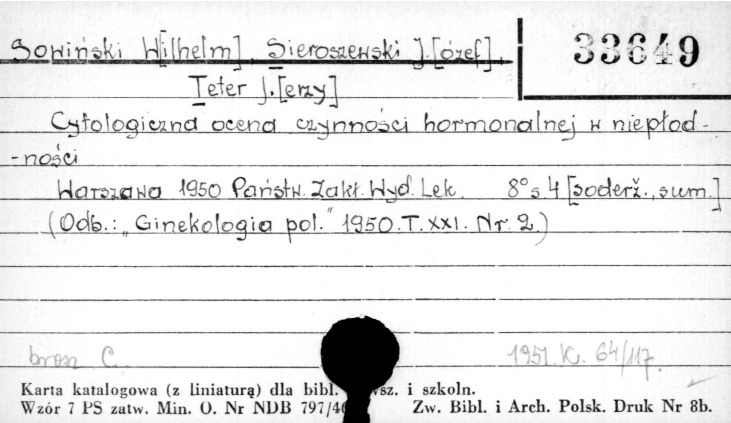 Sowiński W[ilhelm], Sieroszewski J.[ózef], 33649
Teter J.[erzy]
Cytologiczna ocena czynności hormonalnej w niepłod-
-ności
Warszawa 1950 Państw. Zakł. Wyd. Lek. 8° s 4 [soderž., sum.]
(Odb.: „Ginekologia pol." 1950. T. XXI. Nr. 2.)
brosz C. 1951. K. 64/117.
Karta katalogowa (z liniaturą) dla bibl. i szkoln.
Wzór 7 PS zatw. Min. O. Nr NDB 797/46 Zw. Bibl. i Arch. Polsk. Druk Nr 8b.